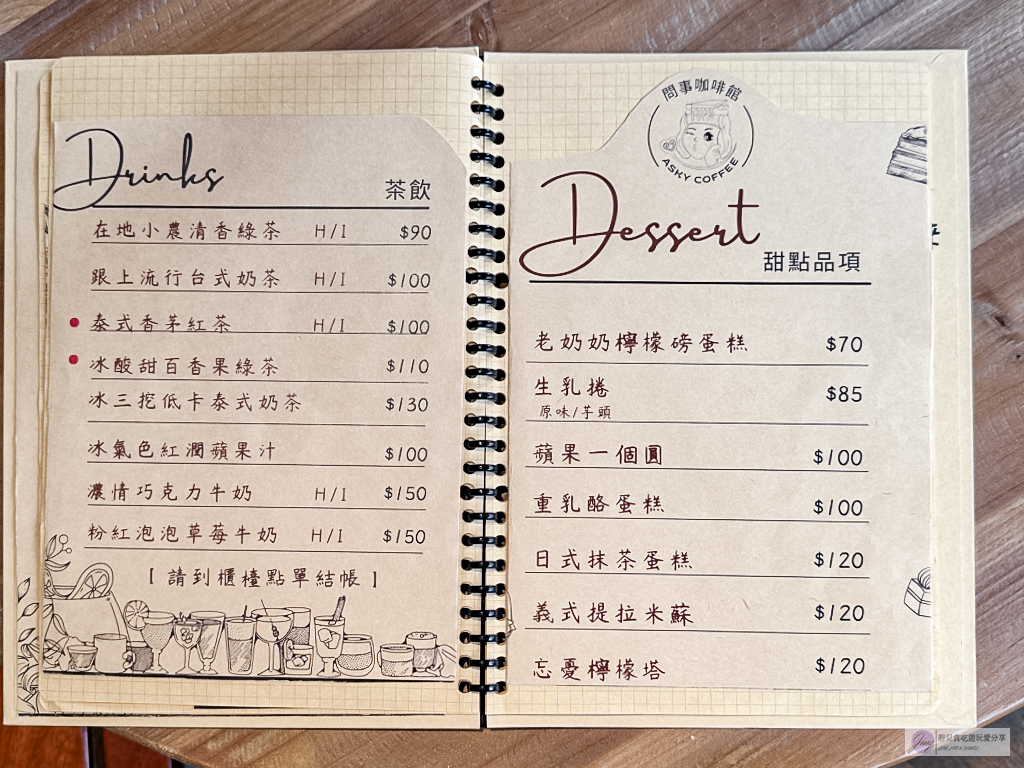 Drinks
茶飲
在地小農清香綠茶 H/I $90
跟上流行台式奶茶 H/I $100
泰式香茅紅茶 H/I $100
冰酸甜百香果綠茶 $110
冰三挖低卡泰式奶茶 $130
冰氣色紅潤蘋果汁 $100
濃情巧克力牛奶 H/I $150
粉紅泡泡草莓牛奶 H/I $150
[ 請到櫃檯點單結帳 ]
問事咖啡館
ASKY COFFEE
Dessert
甜點品項
老奶奶檸檬磅蛋糕 $70
生乳捲 $85
原味/芋頭
蘋果一個圓 $100
重乳酪蛋糕 $100
日式抹茶蛋糕 $120
義式提拉米蘇 $120
忘憂檸檬塔 $120